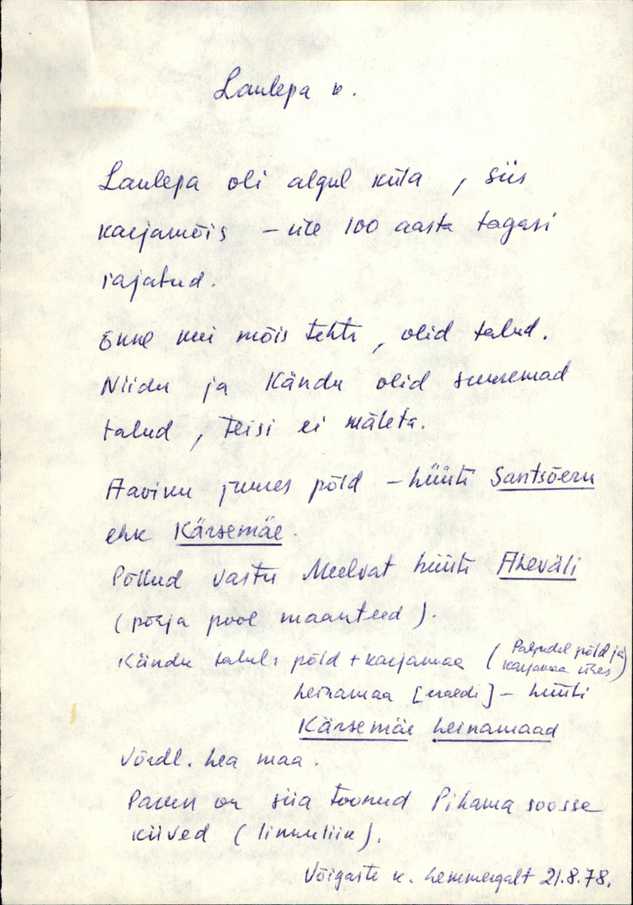 Laulepa k.
Laulepa oli algul küla, siis
karjamõis – üle 100 aasta tagasi
rajatud.
Enne kui mõis tehti, olid talud.
Niidu ja Kändu olid suuremad
talud, teisi ei mäleta.
Aaviku juures põld – hüüti Santsõeru
ehk Kärsemäe.
Põllud vastu Meelvat hüüti Aheväli
(põhja pool maanteed).
Kändu talul: põld + karjamaa (
põld ja
karjamaa ühes)
heinamaa [eraldi] – hüüti
Kärsemäe heinamaad
Võrdl. hea maa.
on siia toonud Pihama soosse
kiived (linnuliik).
Võigaste k. 21.8.78.